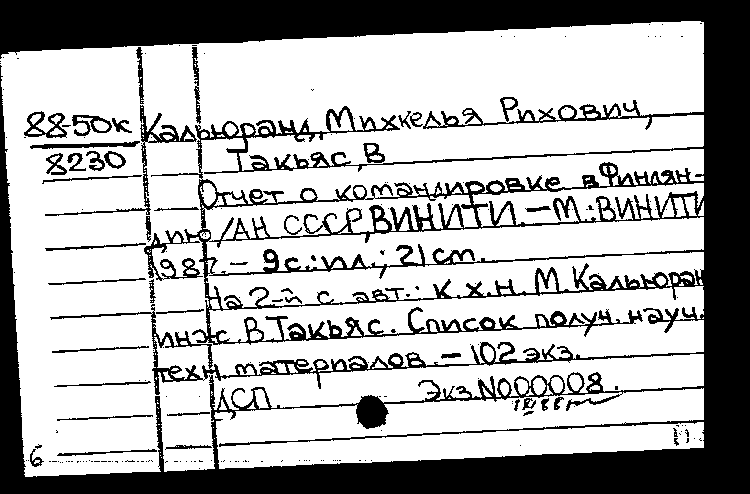 88-50к Кальюранд, Михкелья Рихович,
8230 Такьяс, В
Отчет о командировке в Финлян-
дию /АН СССР, ВИНИТИ. - М.: ВИНИТИ
1987. - 9 с.: ил.; 21 см.
На 2-й с. авт.: к.х.н. М. Кальюран
инж. В. Такьяс. Список получ. науч.
техн. материалов. - 102 экз.
ДСП. Экз. N000008.
6